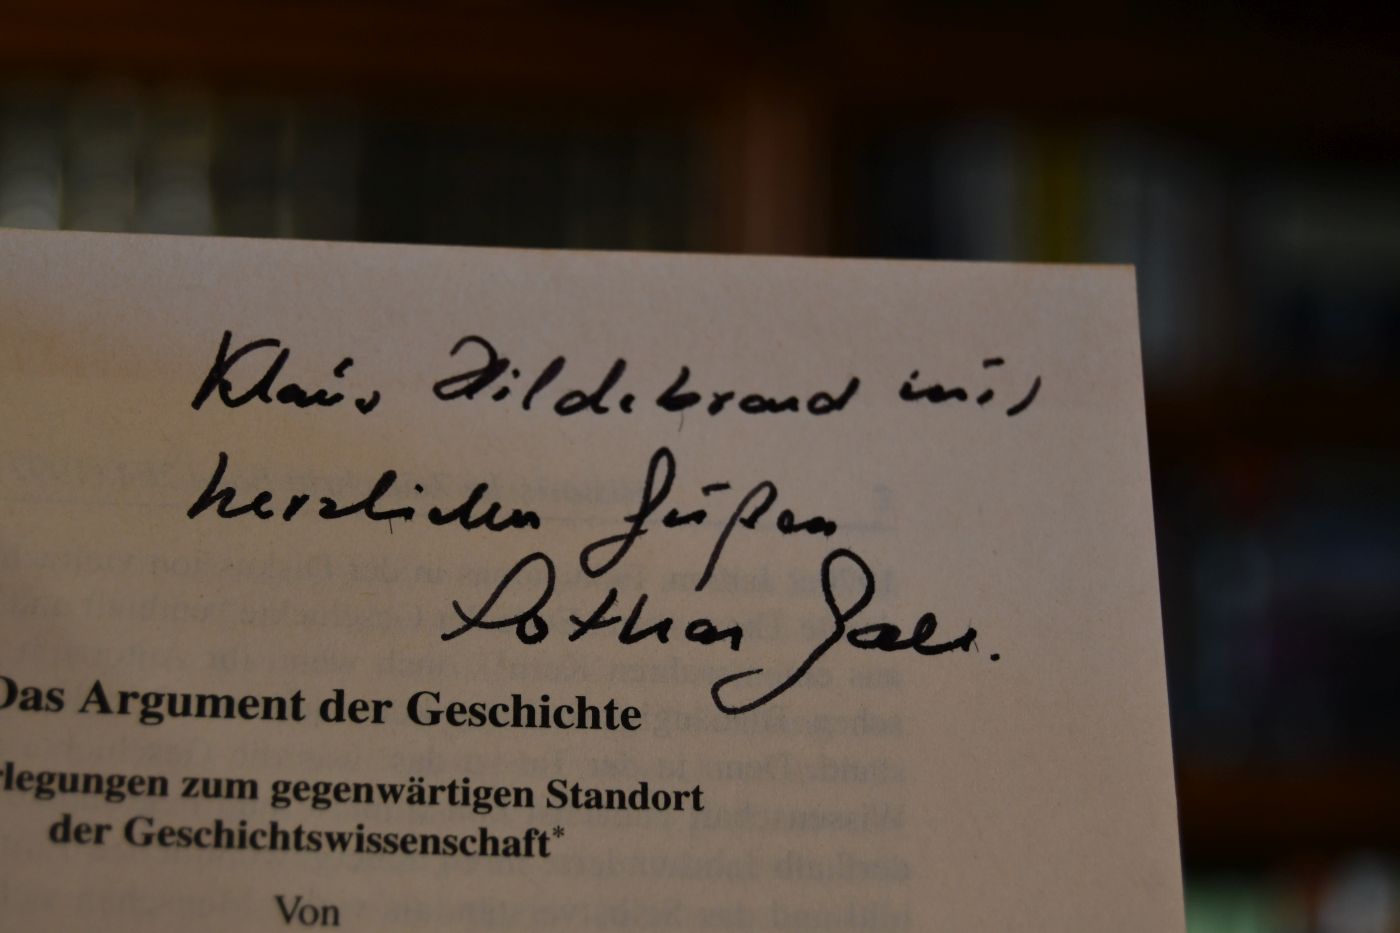 Klaus Hildebrand mit
herzlichen Grüßen
Lothar Gall.
Das Argument der Geschichte
rlegungen zum gegenwärtigen Standort
der Geschichtswissenschaft*
Von